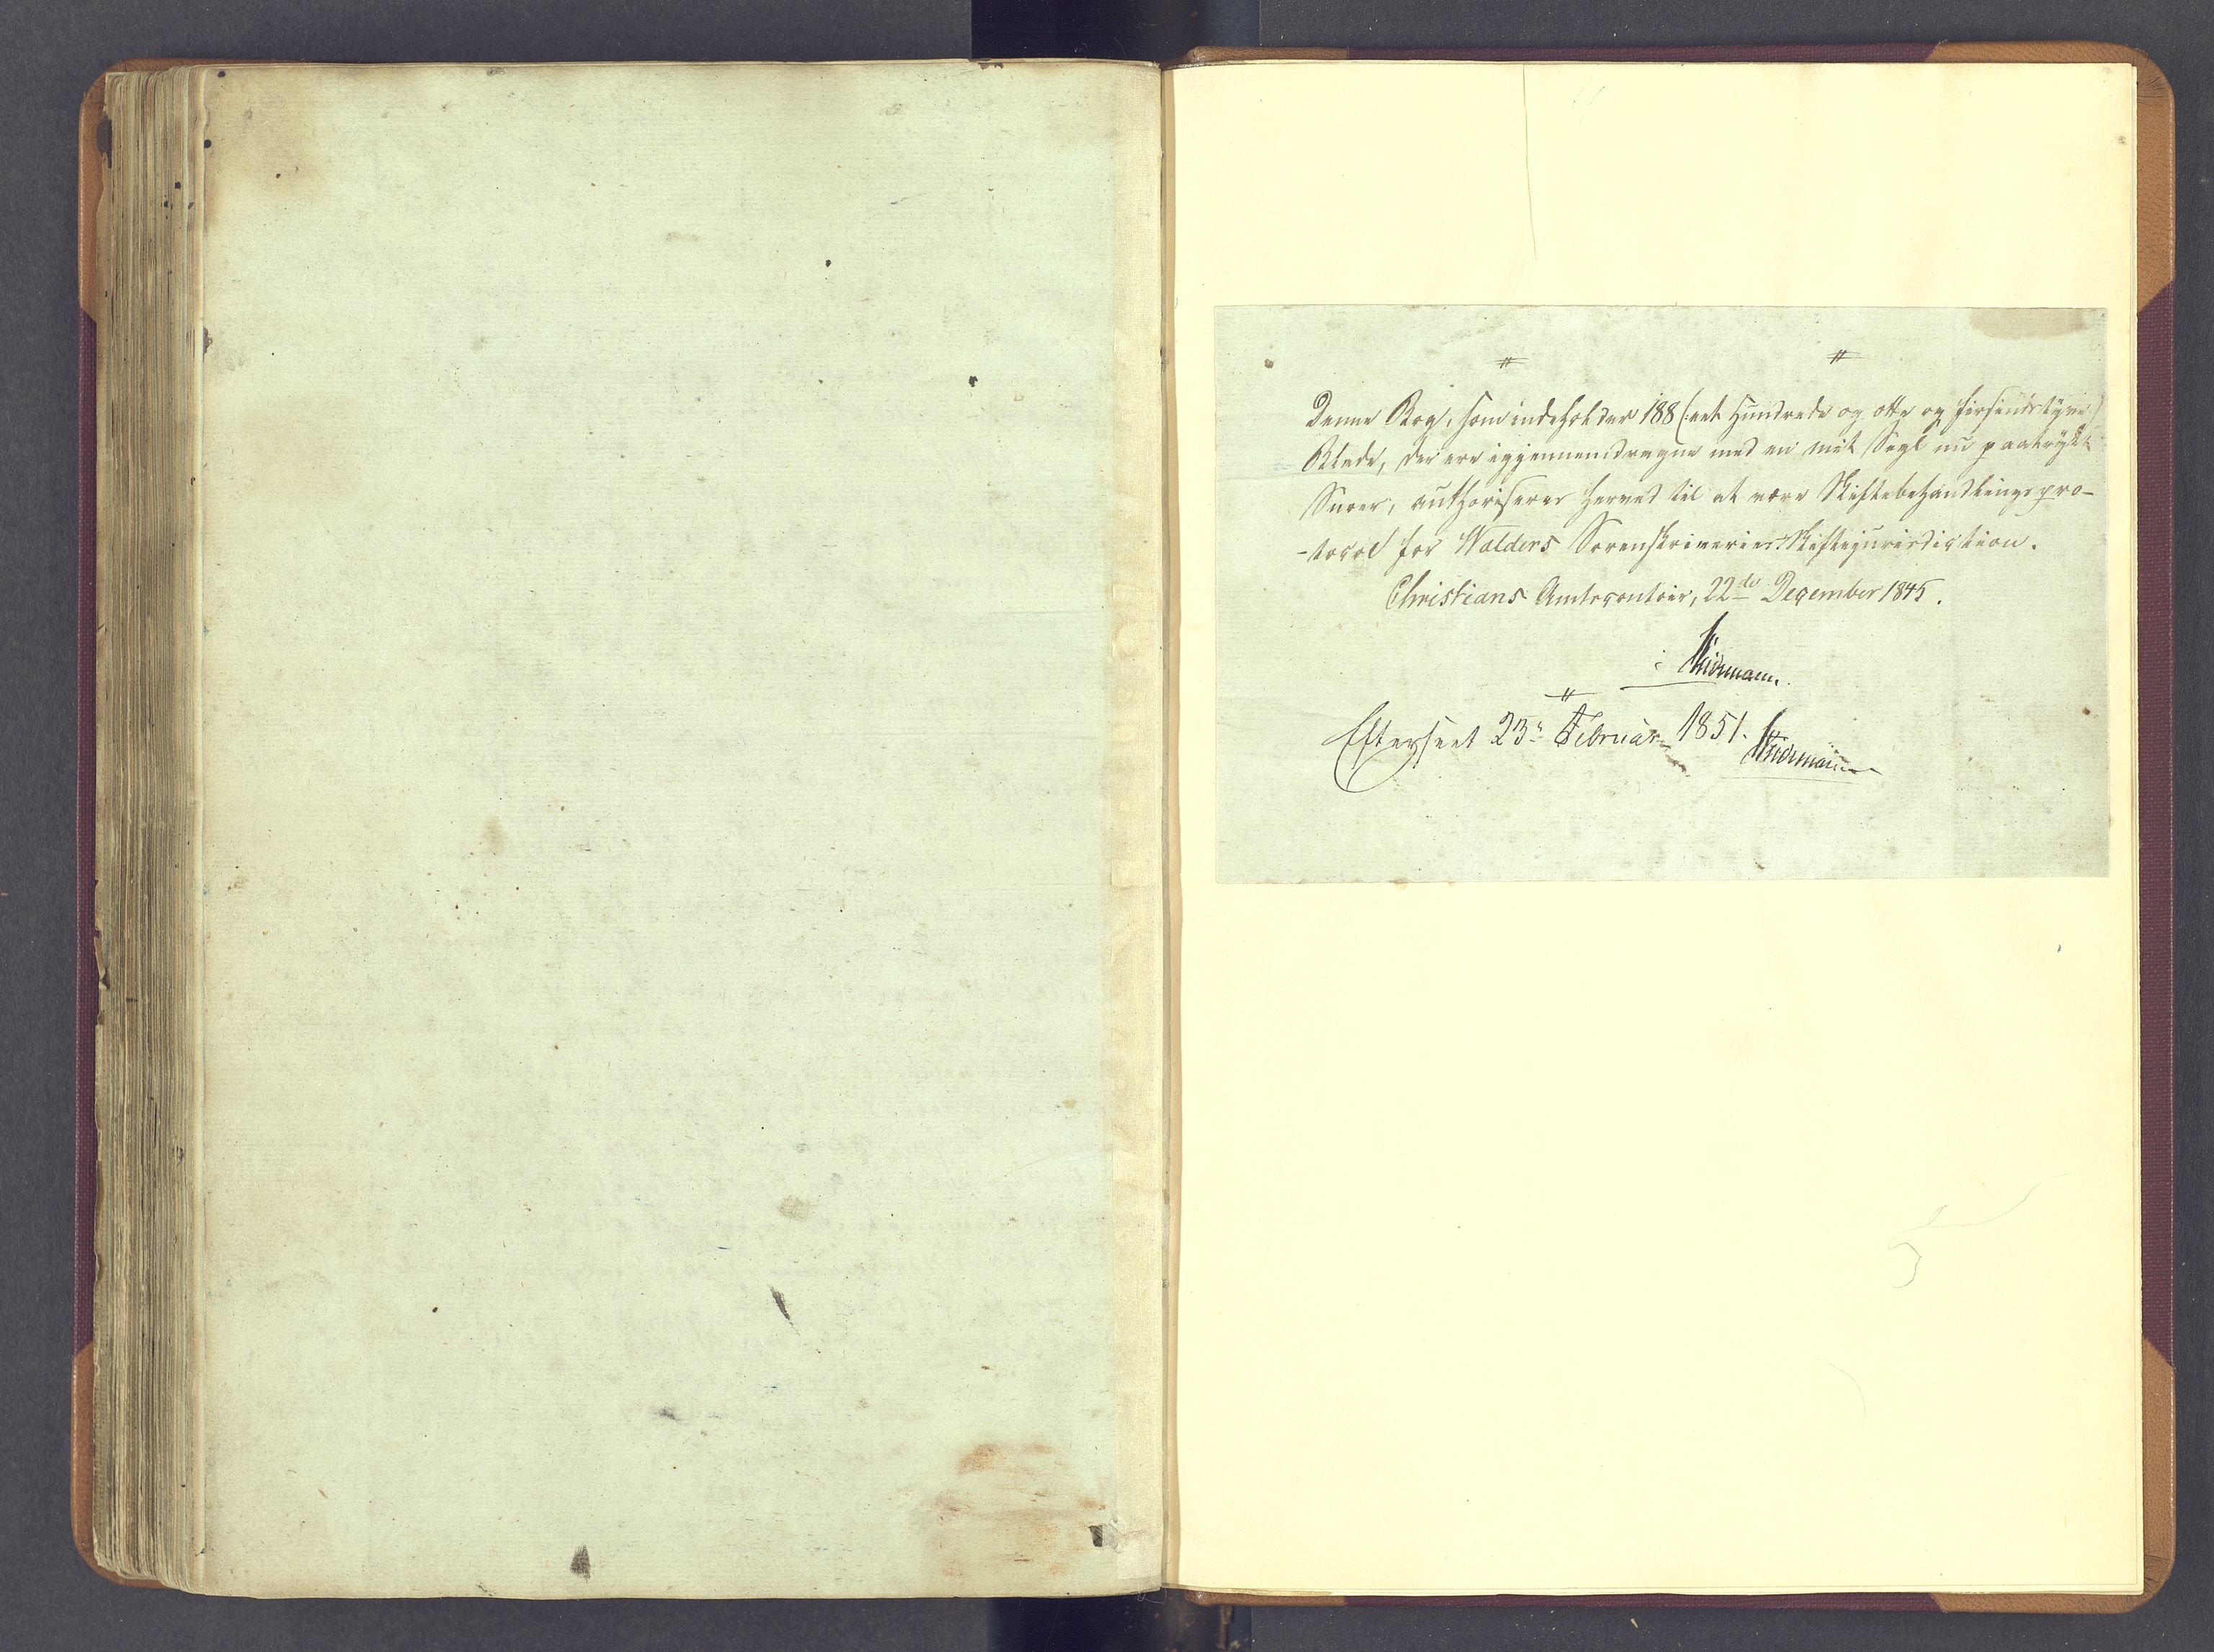 Denne Bog, som indeholder 188 (: eet Hundrede og otte og firsindstyve)
Blade, der ere igjennemdragne med en mit Segl nu paatrykt
Snoer, authoriseres herved til at være Skiftebehandlingspro-
-tocol for Walders Sorenskriveries Skiftejurisdiction.
Christians Amtscontoir, 22de December 1845.
Efterseet 23de Februar 1851.